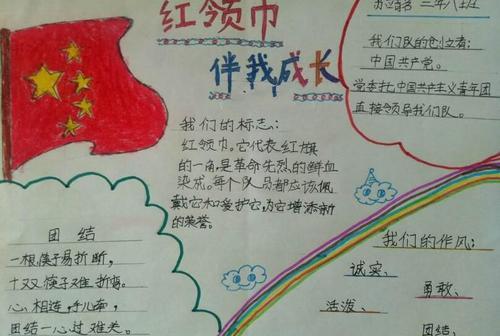 红领巾
伴我成长
我们队的创立者:
中国共产党。
党委托中国共产主义青年团
直接领导我们队。
我们的标志:
红领巾。它代表红旗
的一角,是革命先烈的鲜血
染成。每个队员都应该佩
戴它和爱护它,为它增添新
的荣誉。
团结
一根筷子易折断,
十双筷子难折弯。
心相连,手儿牵,
团结一心过难关。
我们的作风:
诚实、
勇敢、
活泼、
团结、